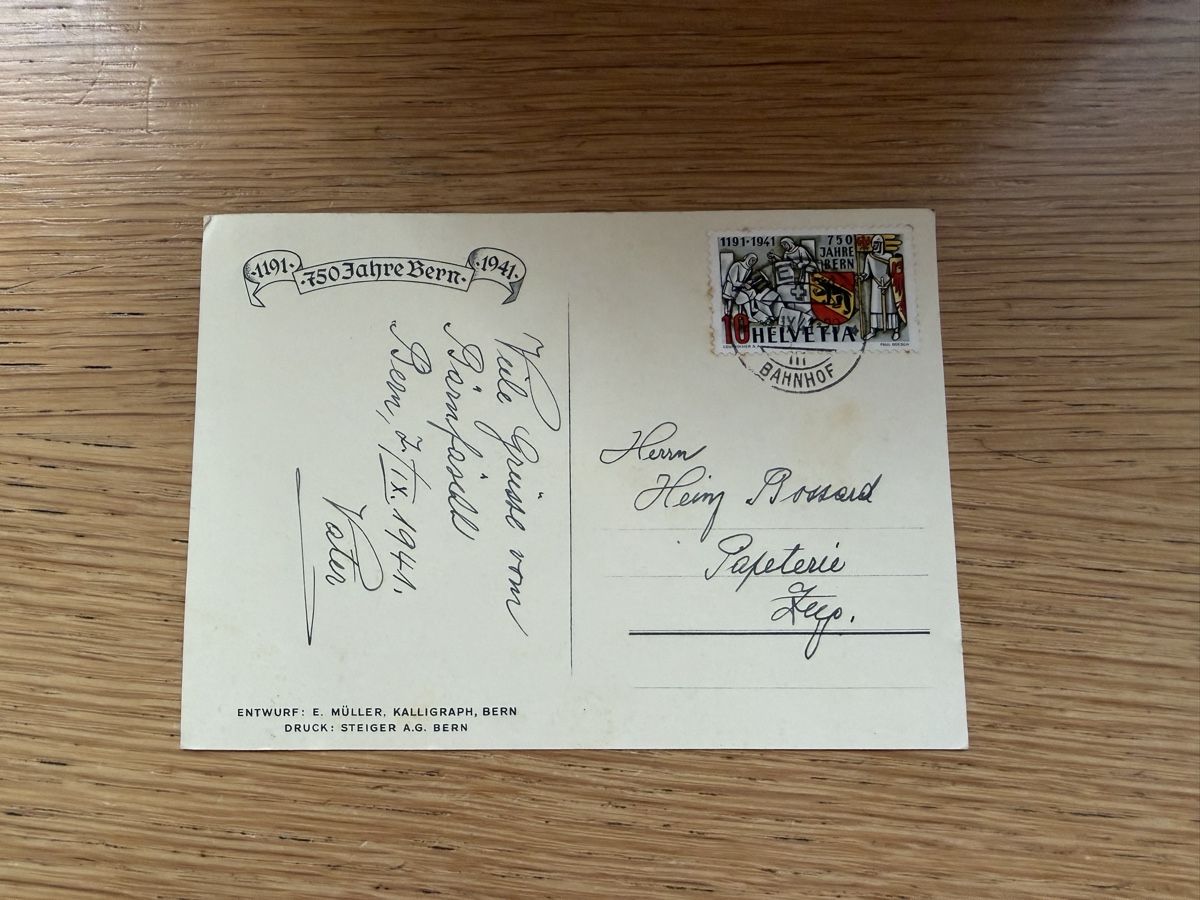 ·1191· ·750 Jahre Bern· ·1941·
Viele Grüsse vom
Bärnfäscht
Bern, 7/IX. 1941.
Vater
ENTWURF: E. MÜLLER, KALLIGRAPH, BERN
DRUCK: STEIGER A.G. BERN
1191·1941
750
JAHRE
BERN
10 HELVETIA
COURVOISIER S.A.
PAUL BOESCH
BAHNHOF
Herrn
Heinz Bossard
Papeterie
Zug.